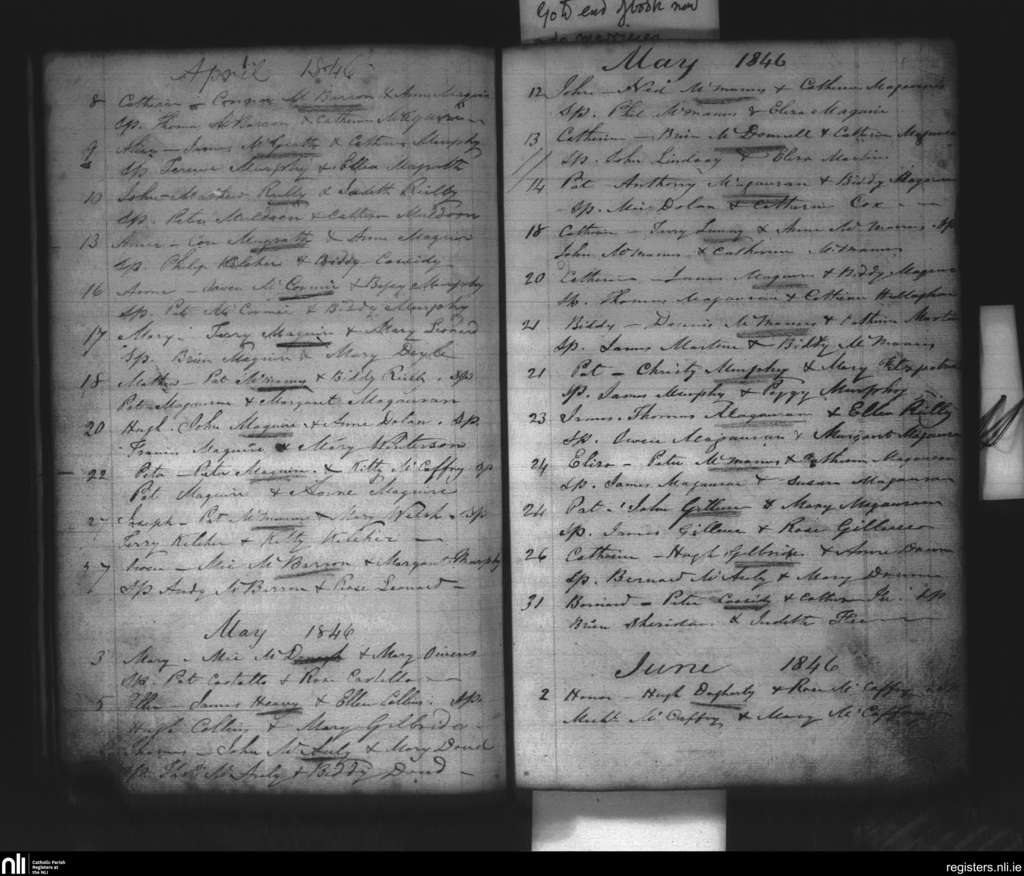 Go to end of book now
April 1846
8 Catherine - Connor McBarron & Anne Maguire
Sp. Thomas McBarron & Catherine McGovern
9 Alice - James McGrath & Catherine Murphy
Sp. Terence Murphy & Ellen Magrath
10 John - Reilly & Judith Reilly
Sp. Peter Muldoon & Catherine Muldoon
13 Anne - Con Magrath & Anne Maguire
Sp. Philip Kelcher & Biddy Cassidy
16 Anne - Owen McCormic & Betsy Murphy
Sp. Pat McCormic & Biddy Murphy
17 Mary - Terry Maguire & Mary Leonard
Sp. Brien Maguire & Mary Doyle
18 Mathew - Pat McManus & Biddy Reily. Sp.
Pat Magauran & Margaret Magauran
20 Hugh - John Maguire & Anne Dolan. Sp.
Francis Maguire & Mary
22 Peter - Peter Maguire & Kitty McCaffry Sp
Pat Maguire & Anne Maguire
27 Joseph - Pat McManus & Mary Walsh. Sp
Terry Kelcher & Kitty Kelcher
27 Owen - Mic McBarron & Margaret Murphy
Sp Andy McBarron & Rose Leonard
May 1846
3 Mary - Mic McDonagh & Mary Owens
Sp. Pat Costello & Rose Costello
5 Ellen - James Heavy & Ellen Collins. Sp.
Hugh Collins & Mary Gilbride
Thomas - John McAuly & Mary Doud
Sp. Thos. McAuly & Biddy Doud
May 1846
12 John - Neid McManus & Catherine Magauran
Sp. Phil McManus & Eliza Maguire
13 Catherine - Brien McDonnell & Catherine
Sp. John Lindsay & Eliza Martin
14 Pat - Anthony Magauran & Biddy Magauran
Sp. Mic Dolan & Catherine Cox
18 Catherine - Terry Lunny & Anne McManus Sp
John McManus & Catherine McManus
20 Catherine - James Magauran & Biddy
Sp. Thomas Magauran & Catherine
21 Biddy - Dennis McManus & Catherine Martin
Sp. James Martin & Biddy McManus
21 Pat - Christy Murphy & Mary Fitzpatrick
Sp. James Murphy & Peggy Murphy
23 James - Thomas Magauran & Ellen Reilly
Sp. Owen Magauran & Margaret Magauran
24 Eliza - Peter McManus & Catherine Magauran
Sp. James Magauran & Susan Magauran
24 Pat - John Gilleece & Mary Magauran
Sp. James Gilleece & Rose Gilleece
26 Catherine - Hugh Gilbride & Anne
Sp. Bernard McAuly & Mary
31 Bernard - Peter Cassidy & Catherine Sp
Brien Sheridan & Judith
June 1846
2 Honor - Hugh Dogherty & Rose McCaffry
Michl. McCaffry & Mary McCaffry
nli
Catholic Parish
Registers at
the NLI
registers.nli.ie